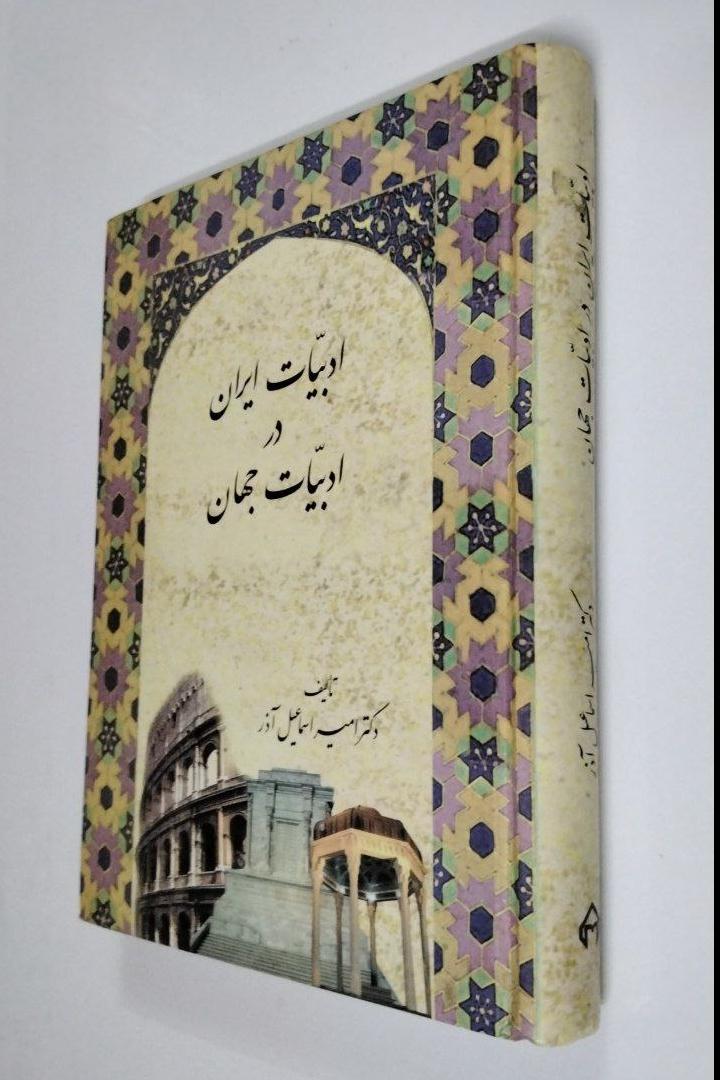 ادبیّات ایران
در
ادبیّات جهان
تألیف
دکتر امیر اسماعیل آذر
ادبیّات ایران در ادبیّات جهان
دکتر امیر اسماعیل آذر